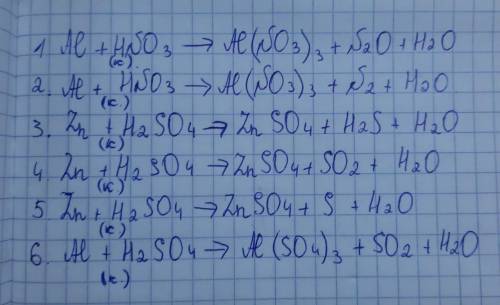 1. Al + HNO3 → Al(NO3)3 + N2O + H2O
(к)
2. Al + HNO3 → Al(NO3)3 + N2 + H2O
(к.)
3. Zn + H2SO4 → ZnSO4 + H2S + H2O
(к)
4. Zn + H2SO4 → ZnSO4 + SO2 + H2O
(к)
5 Zn + H2SO4 → ZnSO4 + S + H2O
(к)
6. Al + H2SO4 → Al(SO4)3 + SO2 + H2O
(к.)